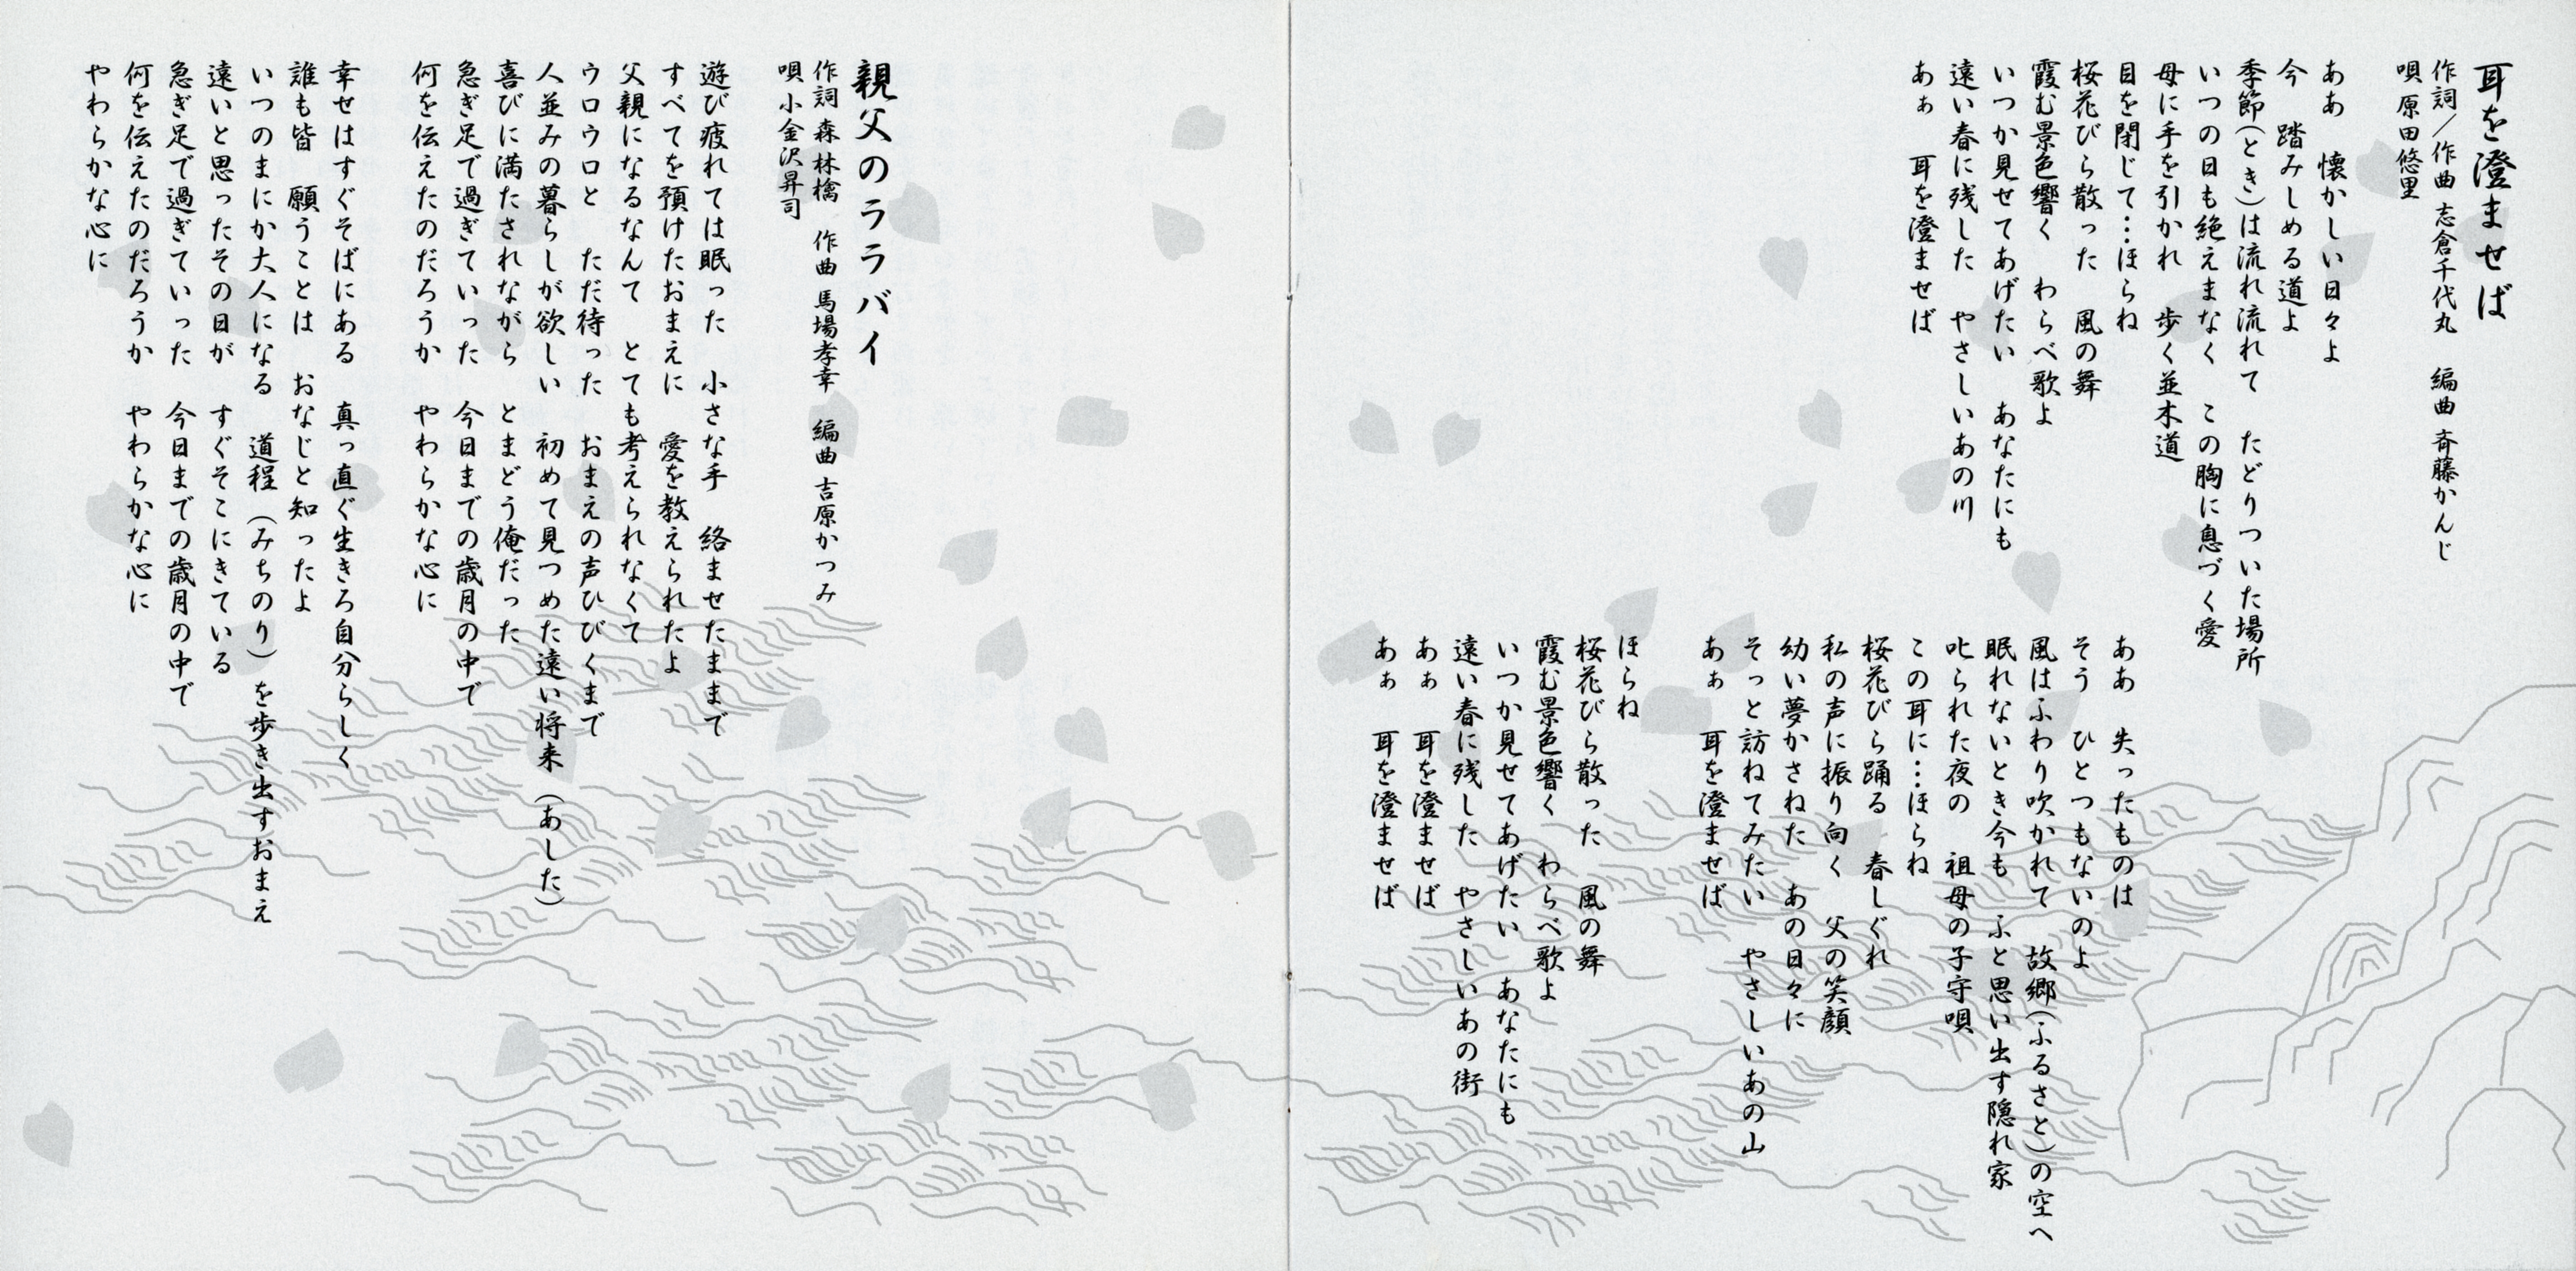 耳を澄ませば
作詞／作曲 志倉千代丸　編曲 斉藤かんじ
唄 原田悠里
ああ　懐かしい日々よ
今　踏みしめる道よ
季節(とき)は流れ流れて　たどりついた場所
いつの日も絶えまなく　この胸に息づく愛
母に手を引かれ　歩く並木道
目を閉じて…ほらね
桜花びら散った　風の舞
霞む景色響く　わらべ歌よ
いつか見せてあげたい　あなたにも
遠い春に残した　やさしいあの川
あぁ　耳を澄ませば
ああ　失ったものは
そう　ひとつもないのよ
風はふわり吹かれて　故郷(ふるさと)の空へ
眠れないとき今も　ふと思い出す隠れ家
叱られた夜の　祖母の子守唄
この耳に…ほらね
桜花びら踊る　春しぐれ
私の声に振り向く　父の笑顔
幼い夢かさねた　あの日々に
そっと訪ねてみたい　やさしいあの山
あぁ　耳を澄ませば
ほらね
桜花びら散った　風の舞
霞む景色響く　わらべ歌よ
いつか見せてあげたい　あなたにも
遠い春に残した　やさしいあの街
あぁ　耳を澄ませば
あぁ　耳を澄ませば
親父のララバイ
作詞 森 林檎　作曲 馬場孝幸　編曲 吉原かつみ
唄 小金沢昇司
遊び疲れては眠った　小さな手　絡ませたままで
すべてを預けたおまえに　愛を教えられたよ
父親になるなんて　とても考えられなくて
ウロウロと　ただ待った　おまえの声ひびくまで
人並みの暮らしが欲しい　初めて見つめた遠い将来（あした）
喜びに満たされながら　とまどう俺だった
急ぎ足で過ぎていった　今日までの歳月の中で
何を伝えたのだろうか　やわらかな心に
幸せはすぐそばにある　真っ直ぐ生きろ自分らしく
誰も皆　願うことは　おなじと知ったよ
いつのまにか大人になる　道程（みちのり）を歩き出すおまえ
遠いと思ったその日が　すぐそこにきている
急ぎ足で過ぎていった　今日までの歳月の中で
何を伝えたのだろうか　やわらかな心に
やわらかな心に